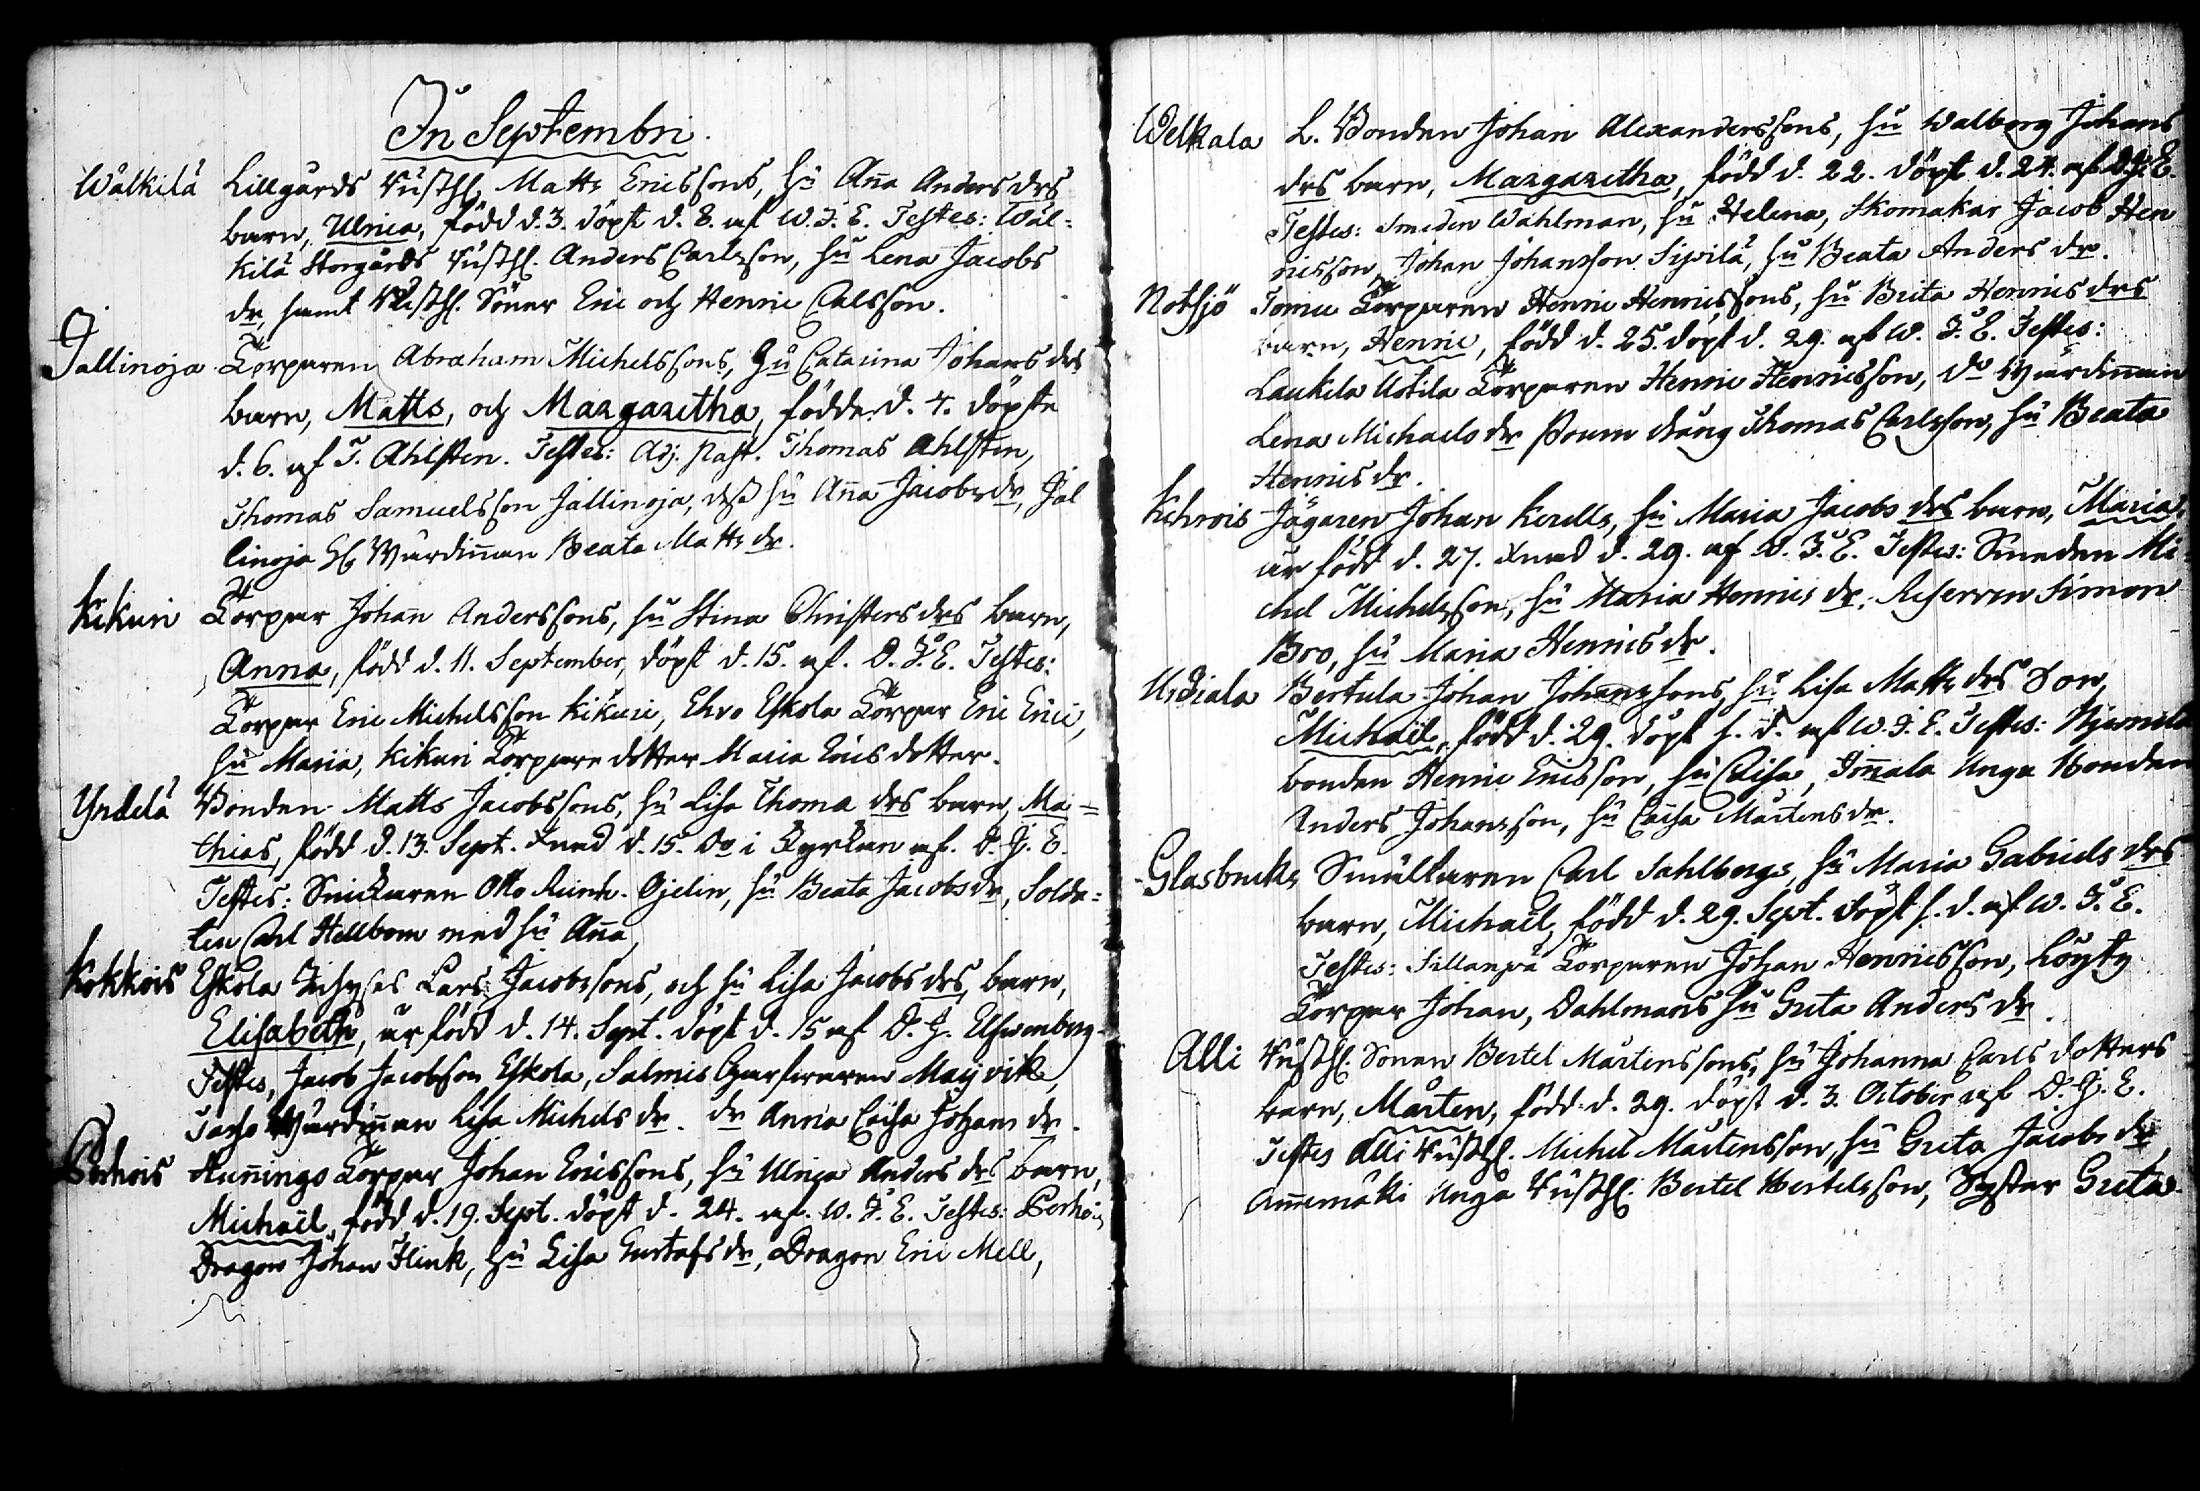 In Septembri.
Wälkilä Lillgårds Rusth. Matts Ericssons, hu Aña Anders drs
barn, Ulrica, född d. 3. döpt d. 8. af W. F. E. Testes: Wäl-
kilä Storgårds Rusth. Anders Carlsson, hu Lena Jacobs
dr, samt Rusth. Söner Eric och Henric Carlsson.
Jallinoja Torparen Abraham Michelssons, hu Catarina Johans drs
barn, Matts, och Margaretha, födde d. 4. döpte
d. 6. af T. Ahlsten. Testes: Adj. Past. Thomas Ahlsten,
Thomas Samuelsson Jallinoja, dess hu Aña Jacobs dr, Jal
linoja Wärdiñan Beata Matts dr.
Kikuri Torpar Johañ Anderssons, hu Stina Christers drs barn,
Anna, född d. 11. September, döpt d. 15. af. D. F. E. Testes:
Torpar Eric Michelsson Kikuri, Ehro Eskola Torpar Eric Eric,
hu Maria, Kikuri Torpare dotter Maria Erics dotter.
Yrdelä Bonden Matts Jacobssons, hu Lisa Thoma drs barn, Ma-
thias, född d. 13. Sept. Xnad d. 15. Do i Kyrkan af. D. J. E.
Testes: Snickaren Otto Reinh. Ojelin, hu Beata Jacobs dr, Solda-
ten Carl Hellbom med hu Aña,
Kokkois Eskola Inhyses Lars Jacobssons, och hu Lisa Jacobs drs, barn,
Elisabeth, är född d. 14. Sept. döpt d. 15 af D. J. Elfwenberg.
Testes, Jacob Jacobsson Eskola, Salmis Garfwaren Majvik,
Wärdiñan Lisa Michels dr. dr Anna Caisa Johans dr.
Perhois Huñings Torpar Johan Ericssons, hu Ulrica Anders drs barn,
Michaël, född d. 19. Sept. döpt d. 24. af. W. F. E. Testes: Perhois
Dragon Johan Flink, hu Lisa Gustafs dr, Dragon Eric Mell,
Welkala L. Bonden Johan Alexanderssons, hu Walborg Johans
drs barn, Margaretha, född d. 22. döpt d. 24. af D. J. E.
Testes: Smeden Wahlman, hu Helena, Skomakar Jacob Hen
ricsson, Johan Johansson Sipilä, hu Beata Anders dr.
Notsjö Tomu Torparen Henric Henricssons, hu Brita Henrics drs
barn, Henric, född d. 25. döpt d. 29. af W. F. E. Testes:
Laukela Uotila Torparen Henric Henricsson, do Wärdiñan
Lena Michaels dr dräng Thomas Carlsson, hu Beata
Henrics dr.
Kehrois Jägaren Johan Kerells, hu Maria Jacobs drs barn, Maria,
är född d. 27. Xnad d. 29. af D. F. E. Testes: Smeden Mi-
chel Michelsson, hu Maria Henrics dr. Reserven Simon
Bro, hu Maria Henrics dr.
Urdiala Bertula Johan Johanssons, hu Lisa Matts drs Son,
Michaël, född d. 29. döpt s. d. af W. F. E. Testes:
bonden Henric Ericsson, hu Caisa, Joñala Unga Bonden
Anders Johansson, hu Caisa Mårtens dr.
Glasbruks Smältaren Carl Sahlbergs, hu Maria Gabriels drs
barn, Michaël, född d. 29. Sept. döpt s. d. af W. F. E.
Testes: Sillanpä Torparen Johan Henricsson, Löyty
Torpar Johan, Dahlmans hu Greta Anders dr.
Alli Rusth. Sonen Bertel Mårtenssons, hu Johanna Carls dotters
barn, Mårten, född d. 29. döpt d. 3. October af D. J. E.
Testes Alli Rusth. Michel Mårtensson, hu Greta Jacobs dr,
Añemäki Unga Rusth. Bertel Bertelsson, Syster Greta